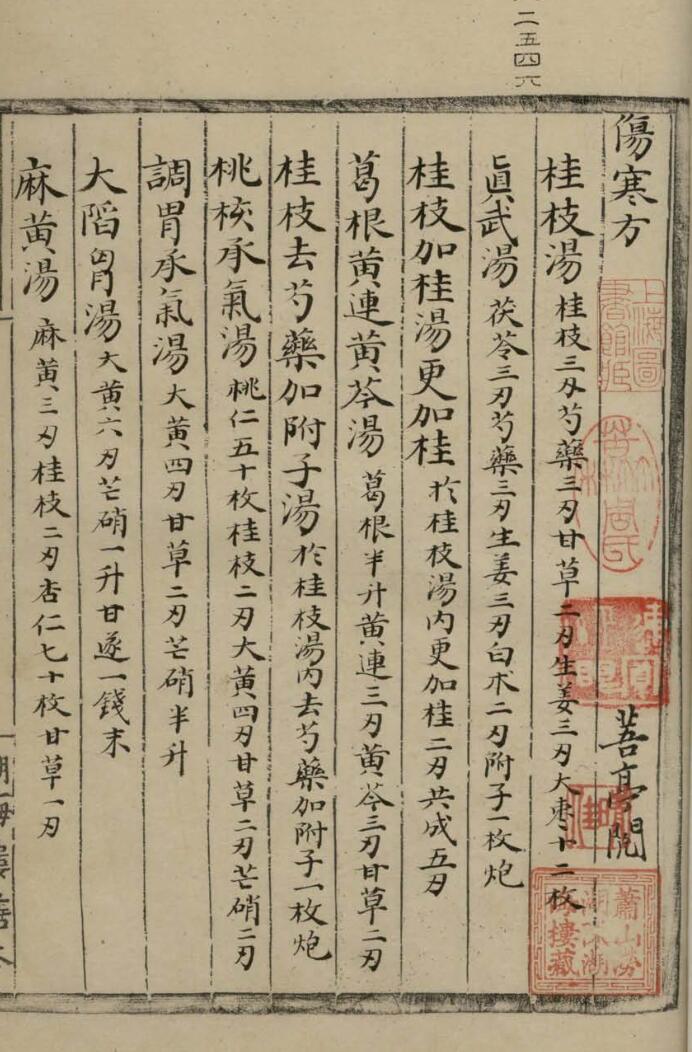 二五四六
傷寒方
上海圖書館藏
菩亭閱
蕭山
桂枝湯 桂枝三刄芍藥三刄甘草二刄生姜三刄大枣十二枚
眞武湯 茯苓三刄芍藥三刄生姜三刄白朮二刄附子一枚炮
桂枝加桂湯更加桂 扵桂枝湯內更加桂二刄共成五刄
葛根黃連黃芩湯 葛根半升黃連三刄黃芩三刄甘草二刄
桂枝去芍藥加附子湯 扵桂枝湯內去芍藥加附子一枚炮
桃核承氣湯 桃仁五十枚桂枝二刄大黃四刄甘草二刄芒硝二刄
調胃承氣湯 大黃四刄甘草二刄芒硝半升
大䧟胷湯 大黃六刄芒硝一升甘遂一錢末
麻黃湯 麻黃三刄桂枝二刄杏仁七十枚甘草一刄